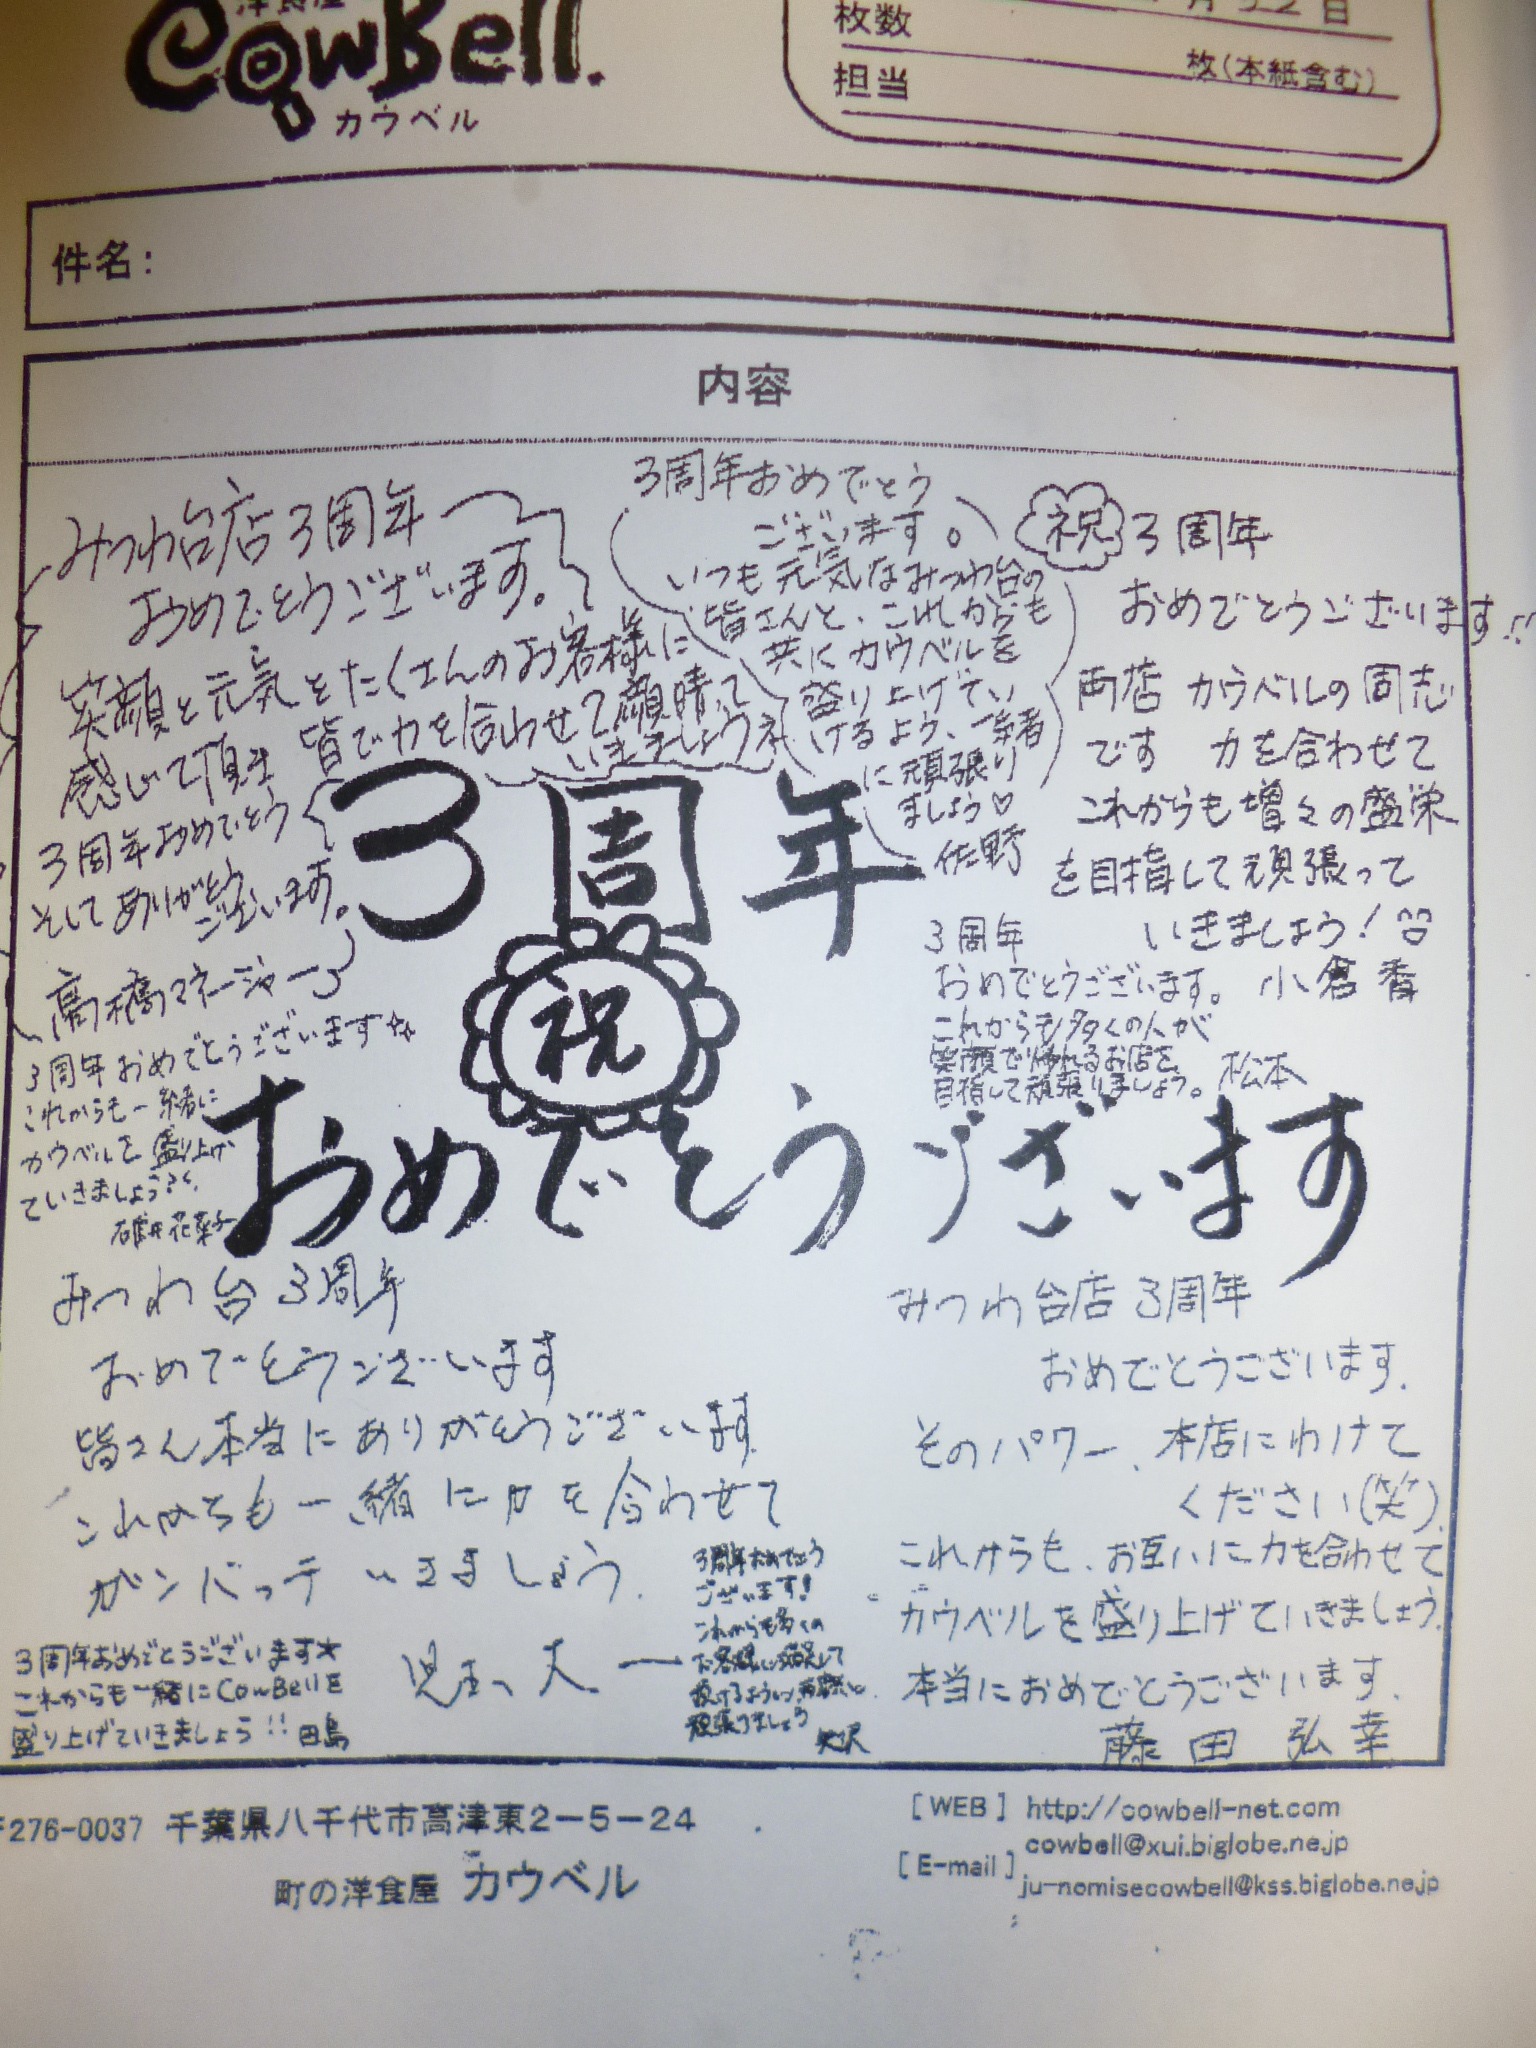 洋食屋
CowBell.
カウベル
枚数
枚(本紙含む)
担当
件名:
内容
みつわ台店3周年
おめでとうございます。
笑顔と元気とたくさんのお客様に
感じて頂き 皆で力を合わせて顔晴って
いきましょうネ
3周年おめでとう
そしてありがとう
ございます。
高橋マネージャー
3周年おめでとう
ございます。
いつも元気なみつわ台の
皆さんと、これからも
共にカウベルを
盛り上げてい
けるよう、一緒
に頑張り
ましょう♡
佐野
祝 3周年
おめでとうございます!!
両店 カウベルの同志
です 力を合わせて
これからも増々の盛栄
を目指して頑張って
いきましょう!
小倉 香
3周年
祝
おめでとうございます
3周年
おめでとうございます。
これからも多くの人が
笑顔で帰れるお店を
目指して頑張りましょう。 松本
3周年おめでとうございます☆
これからも一緒に
カウベルを盛り上げ
ていきましょう
みつわ台3周年
おめでとうございます
皆さん本当にありがとうございます
これからも一緒に力を合わせて
ガンバッテいきましょう.
児玉 大一
みつわ台店3周年
おめでとうございます.
そのパワー、本店にわけて
ください(笑).
これからも、お互いに力を合わせて
カウベルを盛り上げていきましょう.
本当におめでとうございます.
藤田 弘幸
3周年おめでとう
ございます!
これからも多くの
頑張りましょう
3周年おめでとうございます★
これからも一緒にCowBellを
盛り上げていきましょう!! 田島
276-0037 千葉県八千代市高津東2-5-24
町の洋食屋 カウベル
[WEB] http://cowbell-net.com
cowbell@xui.biglobe.ne.jp
[E-mail]
ju-nomisecowbell@kss.biglobe.ne.jp